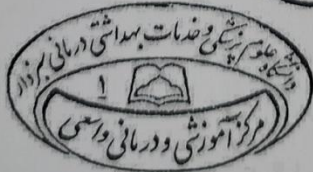 دانشگاه علوم پزشکی و خدمات بهداشتی درمانی سبزوار
۱
مرکز آموزشی و درمانی واسعی